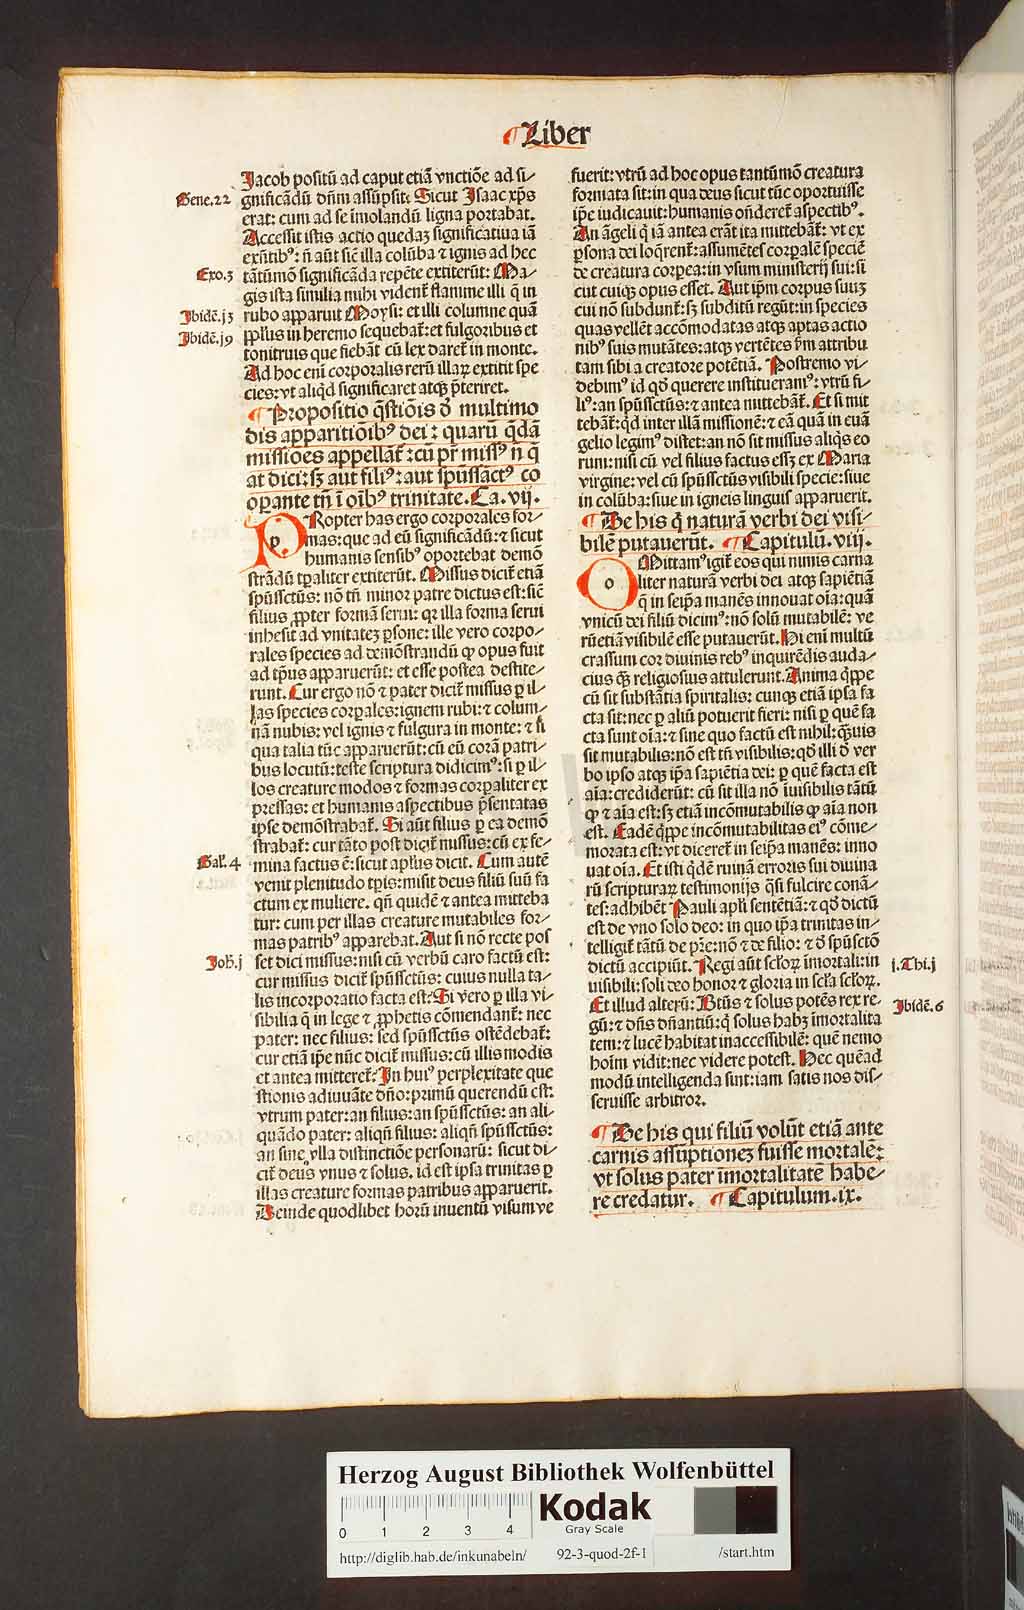 ¶Liber
Jacob positū ad caput etiā vnctiōe ad si⸗
gnificādū dn̄m assūpsit: Sicut Jsaac xp̄s
Gene.22
erat: cum ad se īmolandū ligna portabat.
Accessit istis actio quedaʒ significatiua iā
exn̄tibꝰ: n̄ aūt sic̄ illa colūba ⁊ ignis ad hec
tātūmō significāda repēte extiterūt: Ma⸗
Exo.3
gis ista similia mihi videnť flamme illi q̄ in
rubo apparuit Moysi: et illi columne quā
Jbidē.j3
pp̄lus in heremo sequebať: et fulgoribus et
Jbidē.j9
tonitruis que fiebāt cū lex dareť in monte.
Ad hoc eni corporalis rerū illaꝝ extitit spe
cies: vt aliqd significaret atqꝫ p̄teriret.
¶Propositio q̄stiōis d̄ multimo
dis apparitiōibꝰ dei: quarū q̄dā
missiōes appellať: cū pr̄ missꝰ n̄ q̄
at dici: sꝫ aut filiꝰ: aut spūssāctꝰ co
opante tn̄ ī oībꝰ trinitate. Ca. vij.
PRopter has ergo corporales for⸗
mas: que ad eū significādū: ⁊ sicut
humanis sensibꝰ oportebat demō
strādū tp̄aliter extiterūt. Missus diciť etiā
spūssctūs: nō tn̄ minor patre dictus est: sic̄
filius ꝓpter formā serui: qꝛ illa forma serui
inhesit ad vnitateʒ ꝑsone: ille vero corpo⸗
rales species ad demōstrandū qꝫ opus fuit
ad tp̄us apparuerūt: et esse postea destite⸗
runt. Cur ergo nō ⁊ pater diciť missus ꝑ il⸗
las species corꝑales: ignem rubi: ⁊ colum⸗
nā nubis: vel ignis ⁊ fulgura in monte: ⁊ si
qua talia tūc apparuerūt: cū eū corā patri⸗
bus locutū: teste scriptura didicimꝰ: si ꝑ il⸗
los creature modos ⁊ formas corꝑaliter ex
pressas: et humanis aspectibus p̄sentatas
ipse demōstrabať. Si aūt filius ꝑ ea demō
strabať: cur tāto post diciť missus: cū ex fe⸗
mina factus ē: sicut apl̄us dicit. Cum autē
Gal'. 4
venit plenitudo tp̄is: misit deus filiū suū fa
ctum ex muliere. qn̄ quidē ⁊ antea mitteba
tur: cum per illas creature mutabiles for⸗
mas patribꝰ apparebat. Aut si nō recte pos
set dici missus: nisi cū verbū caro factū est:
Joh̄.j
cur missus diciť spūssctūs: cuius nulla ta⸗
lis incorporatio facta est: Si vero ꝑ illa vi⸗
sibilia q̄ in lege ⁊ ꝓphetis cōmendanť: nec
pater: nec filius: sed spūssctūs ostēdebať:
cur etiā ip̄e nūc diciť missus: cū illis modis
et antea mittereť: Jn huiꝰ perplexitate que
stionis adiuuāte dn̄o: primū querendū est:
vtrum pater: an filius: an spūssctūs: an ali⸗
quādo pater: aliqn̄ filius: aliqn̄ spūssctūs:
an sine vlla distinctiōe personarū: sicut di⸗
ciť deus vnus ⁊ solus. id est ipsa trinitas ꝑ
illas creature formas patribus apparuerit.
Deinde quodlibet horū inuentū visum ve
fuerit: vtrū ad hoc opus tantūmō creatura
formata sit: in qua deus sicut tūc oportuisse
ip̄e iudicauit: humanis on̄dereť aspectibꝰ.
An āgeli q̄ iā antea erāt ita mittebāť: vt ex
ꝑsona dei loq̄renť: assumētes corꝑalē speciē
de creatura corꝑea: in vsum ministerij sui: si
cut cuiqꝫ opus esset. Aut ip̄m corpus suuʒ
cui nō subdunť: sꝫ subditū regūt: in species
quas vellēt accōmodatas atqꝫ aptas actio
nibꝰ suis mutātes: atqꝫ vertētes ẜm attribu
tam sibi a creatore potētiā. Postremo vi⸗
debimꝰ id qd̄ querere institueramꝰ: vtrū fi⸗
liꝰ: an spūssctūs: ⁊ antea mittebať. Et si mit
tebať: qd̄ inter illā missionē: ⁊ eā quā in euā
gelio legimꝰ distet: an nō sit missus aliqs eo
rum: nisi cū vel filius factus essʒ ex Maria
virgine: vel cū spūssctūs visibili specie: siue
in colūba: siue in igneis linguis apparuerit.
¶De his q̄ naturā verbi dei visi⸗
bilē putauerūt. ¶Capitulū. viij.
OMittamꝰ igiť eos qui nimis carna
liter naturā verbi dei atqꝫ sapiētiā
q̄ in seip̄a manēs innouat oīa: quā
vnicū dei filiū dicimꝰ: nō solū mutabilē: ve
rūetiā visibilē esse putauerūt. Hi eni multū
crassum cor diuinis rebꝰ inquirēdis auda⸗
cius qꝫ religiosius attulerunt. Anima q̄ppe
cū sit substātia spiritalis: cunqꝫ etiā ipsa fa
cta sit: nec ꝑ aliū potuerit fieri: nisi ꝑ quē fa
cta sunt oīa: ⁊ sine quo factū est nihil: qꝫuis
sit mutabilis: nō est tn̄ visibilis: qd̄ illi d̄ ver
bo ipso atqꝫ ip̄a sapiētia dei: ꝑ quē facta est
aīa: crediderūt: cū sit illa nō īuisibilis tātū
qꝫ ⁊ aīa est: sꝫ etiā incōmutabilis qꝫ aīa non
est. Eadē q̄ppe incōmutabilitas eiꝰ cōme⸗
morata est: vt dicereť in seip̄a manēs: inno
uat oīa. Et isti qd̄ē ruinā erroris sui diuina
rū scripturaꝝ testimonijs q̄si fulcire conā⸗
tes: adhibēt Pauli apl̄i sentētiā: ⁊ qd̄ dictū
est de vno solo deo: in quo ip̄a trinitas in⸗
telligiť tātū de pr̄e: nō ⁊ de filio: ⁊ d̄ spūsctō
dictū accipiūt. Regi aūt sc̄loꝝ īmortali: in
j.Thi.j
uisibili: soli deo honor ⁊ gloria in sc̄la sc̄loꝝ.
Et illud alterū: Btūs ⁊ solus potēs rex re⸗
Jbidē.6
gū: ⁊ dn̄s dn̄antiū: q̄ solus habʒ īmortalita
tem: ⁊ lucē habitat inaccessibilē: quē nemo
hoīm vidit: nec videre potest. Hec quēad
modū intelligenda sunt: iam satis nos dis⸗
seruisse arbitror.
¶De his qui filiū volūt etiā ante
carnis assūptioneʒ fuisse mortalē:
vt solus pater īmortalitatē habe⸗
re credatur. ¶Capitulum. ix.
Herzog August Bibliothek Wolfenbüttel
0 1 2 3 4
Kodak
Gray Scale
http://diglib.hab.de/inkunabeln/ 92-3-quod-2f-1 /start.htm